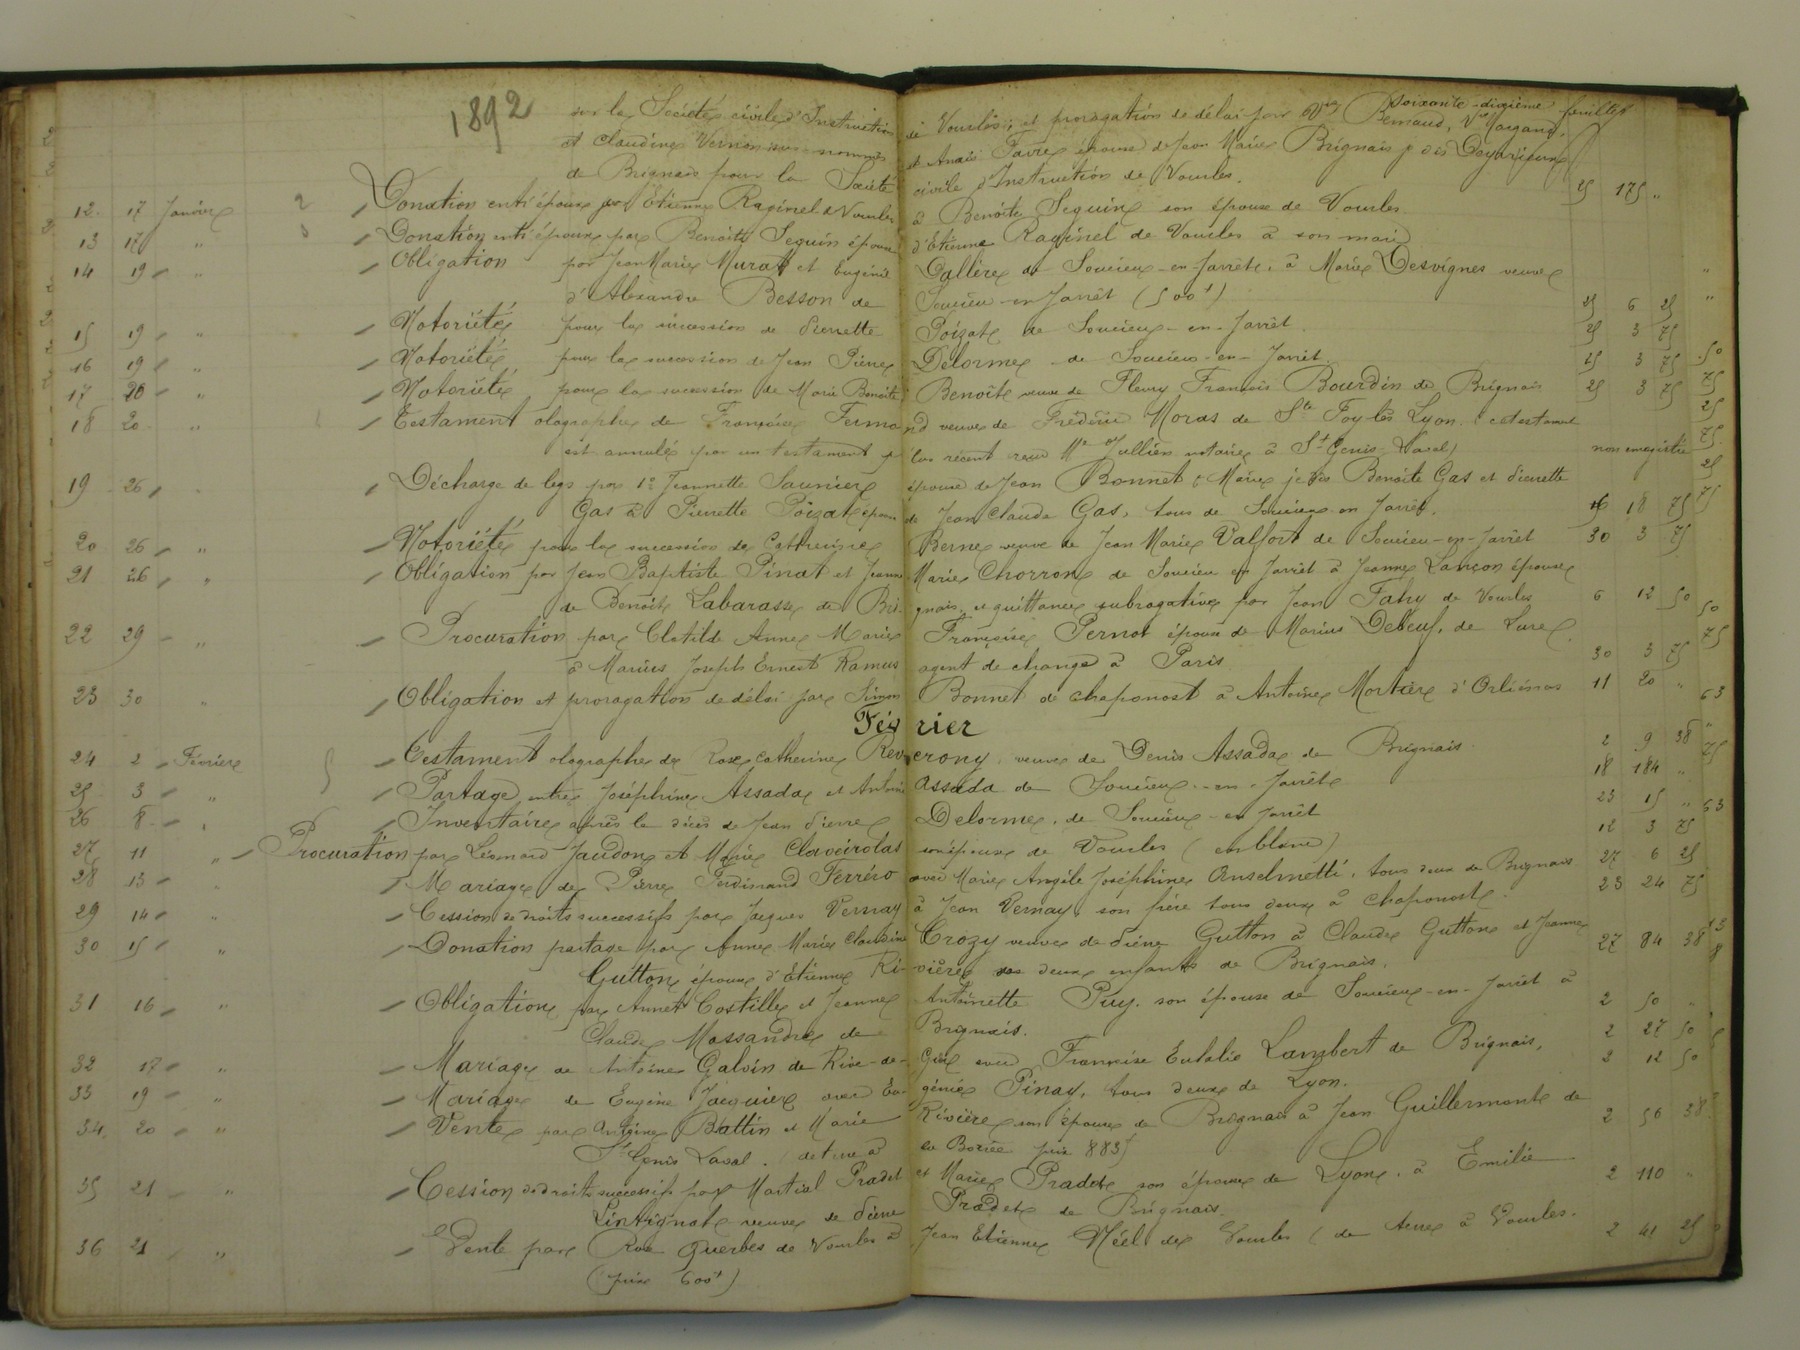 soixante-dixième feuillet
1892 sur la Société civile d'Instruction de Vourles, et prorogation de délai par Bernaud, Vve
et Claudine Vernon sus-nommés et Anaïs Favre épouse de Jean Marie Brignais je dis
de Brignais pour la Société civile d'Instruction de Vourles. 25 175 "
12 17 Janvier 2 Donation entr'époux par Etienne Raginel de Vourles à Benoîte Seguin son épouse de Vourles
13 17 " Donation entr'époux par Benoîte Seguin épouse d'Etienne Raginel de Vourles à son mari
14 19 " Obligation par Jean Marie Murat et Eugénie Dallère de Soucieu-en-Jarrêt, à Marie Desvignes veuve
d'Alexandre Besson de Soucieu-en-Jarrêt (500f) 25 6 25
15 19 " Notoriété pour la succession de Pierrette Poizat de Soucieu-en-Jarrêt 25 3 75
16 19 " Notoriété, pour la succession de Jean Pierre Delorme de Soucieu-en-Jarrêt 25 3 75
17 20 " Notoriété pour la succession de Marie Benoîte Benoîte veuve de Fleury François Bourdin de Brignais 25 3 75
18 20 " Testament olographe de Françoise Fermond veuve de Frédéric Moras de Ste Foy-lès Lyon. (ce testament
est annulé par un testament plus récent reçu Me Jullien notaire à St Genis Laval) non enregistré
19 26 " Décharge de legs par 1° Jeannette Saunier épouse de Jean Bonnet, Marie je dis Benoîte Gas et Pierrette
Gas à Pierrette Poizat épouse de Jean Claude Gas, tous de Soucieu en Jarrêt. 16 18 75
20 26 " Notoriété pour la succession de Catherine Berne veuve de Jean Marie Valfort de Soucieu-en-Jarrêt 30 3 75
21 26 " Obligation par Jean Baptiste Pinat et Jeanne Marie Chorron de Soucieu en Jarrêt à Jeanne Lançon épouse
de Benoît Labarasse de Brignais, et quittance subrogative par Jean Fahy de Vourles 6 12 50
22 29 " Procuration par Clotilde Anne Marie Françoise Pernot épouse de Marius Debeuf, de Lure
à Marius Joseph Ernest Ramus agent de change à Paris 30 3 75
23 30 " Obligation et prorogation de délai par Simon Bonnet de Chaponost à Antoine Mortier d'Orliénas 11 20 "
Février
24 2 Février Testament olographe de Rose Catherine Reverony, veuve de Denis Assada de Brignais. 2 9 38
25 3 " Partage entre Joséphine Assada et Antoine Assada de Soucieu-en-Jarrêt 18 184 "
26 8 " Inventaire après le décès de Jean Pierre Delorme, de Soucieu-en Jarrêt 23 15 "
27 11 " Procuration par Léonard Jaudon et Marie Claveirolas son épouse de Vourles (en blanc) 12 3 75
28 13 " Mariage de Pierre Ferdinand Ferréro avec Marie Angèle Joséphine Anselmetti, tous deux de Brignais 27 6 25
29 14 " Cession de droits successifs par Jacques Vernay à Jean Vernay, son frère tous deux à Chaponost. 23 24 75
30 15 " Donation partage par Anne Marie Claudine Crozy veuve de Pierre Gutton à Claude Gutton et Jeanne
Gutton, épouse d'Etienne Rivière ses deux enfants de Brignais. 27 84 38
31 16 " Obligation par Annet Costille et Jeanne Antoinette Puy, son épouse de Soucieu-en-Jarrêt à
Claude Massandre de Brignais. 2 50 "
32 17 " Mariage de Antoine Galvin de Rive-de-Gier avec Françoise Eulalie Lambert de Brignais, 2 27 50
33 19 " Mariage de Eugène Jacquier avec Eugénie Pinay, tous deux de Lyon. 2 12 50
34 20 " Vente par Antoine Battin et Marie Rivière son épouse de Brignais à Jean Guillermont de
St Genis Laval. (de terre à prix 883f) 2 56 38
35 21 " Cession de droits successifs par Martial Pradet et Marie Pradet son épouse de Lyon, à Emilie
Lintignat veuve de Pierre Pradet de Brignais. 2 110 "
36 21 " Vente par Rve Querbes de Vourles à Jean Etienne Néel de Vourles (de terre à Vourles.
(prix 600f) 2 41 25